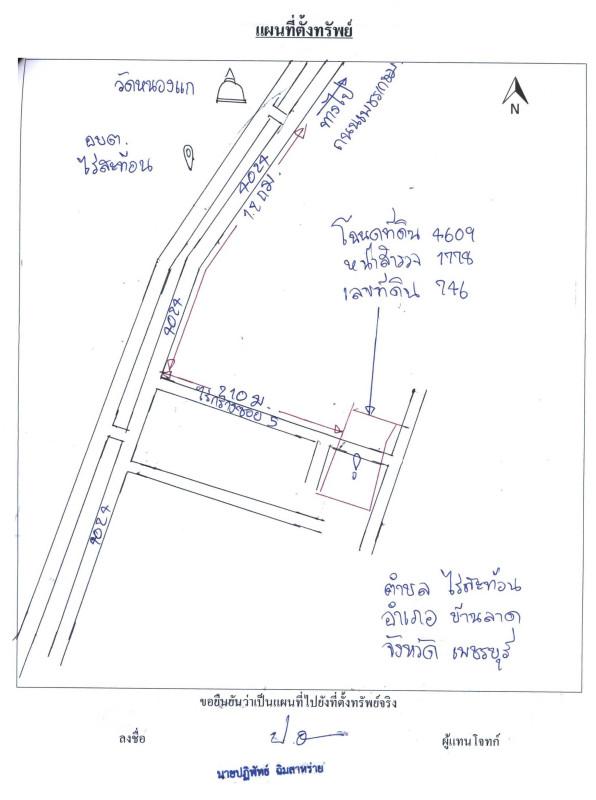 แผนที่ตั้งทรัพย์
วัดหนองแก
N
ทางไป
ถนนเพชรเกษม
อบต.
ไร่สะท้อน
4024
1.2 กม.
โฉนดที่ดิน 4609
หน้าสำรวจ 1778
เลขที่ดิน 746
4024
210 ม.
ซอย 5
4024
ตำบล ไร่สะท้อน
อำเภอ บ้านลาด
จังหวัด เพชรบุรี
ขอยืนยันว่าเป็นแผนที่ไปยังที่ตั้งทรัพย์จริง
ลงชื่อ
ผู้แทนโจทก์
นายปฏิพัทธ์ ฉิมสาหร่าย